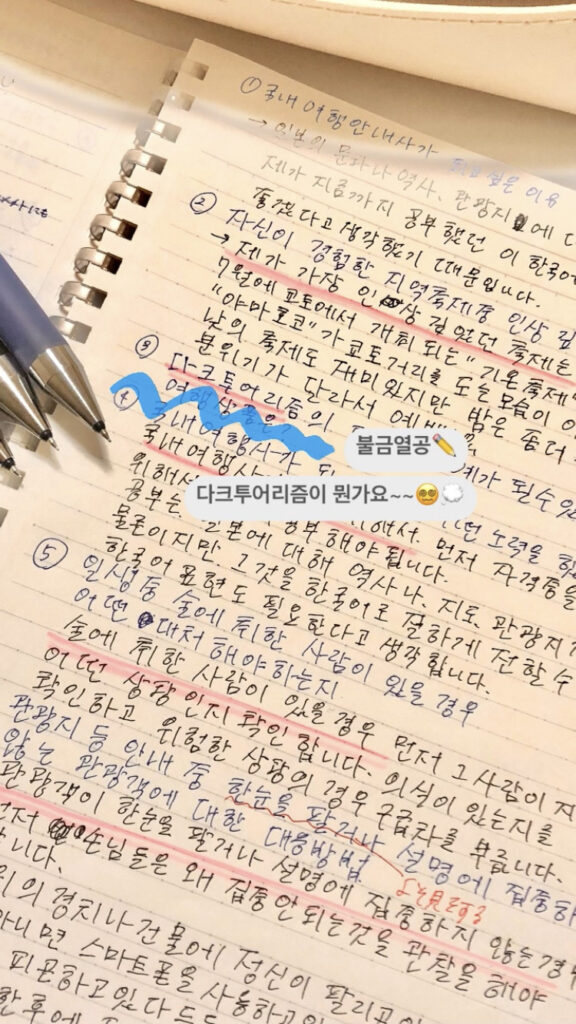 ① 국내여행안내사가 되고 싶은 이유
→ 일본의 문화나 역사, 관광지에
제가 지금까지 공부했던 이 한국어
좋겠다고 생각했기 때문입니다.
② 자신이 경험한 지역축제중 인상
→ 제가 가장 인상 깊었던 축제는
7월에 교토에서 개최되는 "기온축제
"야마보코"가 교토거리를 도는 모습이
낮의 축제도 재미있지만 밤은 좀더
분위기가 달라서
③ 다크투어리즘의
여행상품은
불금열공✏️
④ 국내여행사가 되
국내여행사
다크투어리즘이 뭔가요~~😵‍💫💭
위해서 먼저 자격증을
공부는 일본에 공부해야 됩니다.
물론이지만 일본에 대해 역사나, 지도, 관광지
그것을 한국어로 잘하게 전할 수
한국어 표현도 필요한다고 생각합니다.
⑤ 인생 중 술에 취한 사람이 있을 경우
어떤 대처해야 하는지
술에 취한 사람이 있을 경우 먼저 그사람이
어떤 상황인지 확인합니다. 의식이 있는지를
확인하고 위험한 상황의 경우 구급차를 부릅니다.
관광지 등 안내 중 한눈을 팔거나 설명에 집중하
않는 관광객에 대한 대응방법
관광객이 한눈을 팔거나 설명에 집중하지 않는 경우
먼저 손님들은 왜 집중안되는것을 관찰을 해야
니다.
의 경치나 건물에 정신이 팔리
아니면 스마트폰을 사용하고
피곤하고있다
한후에